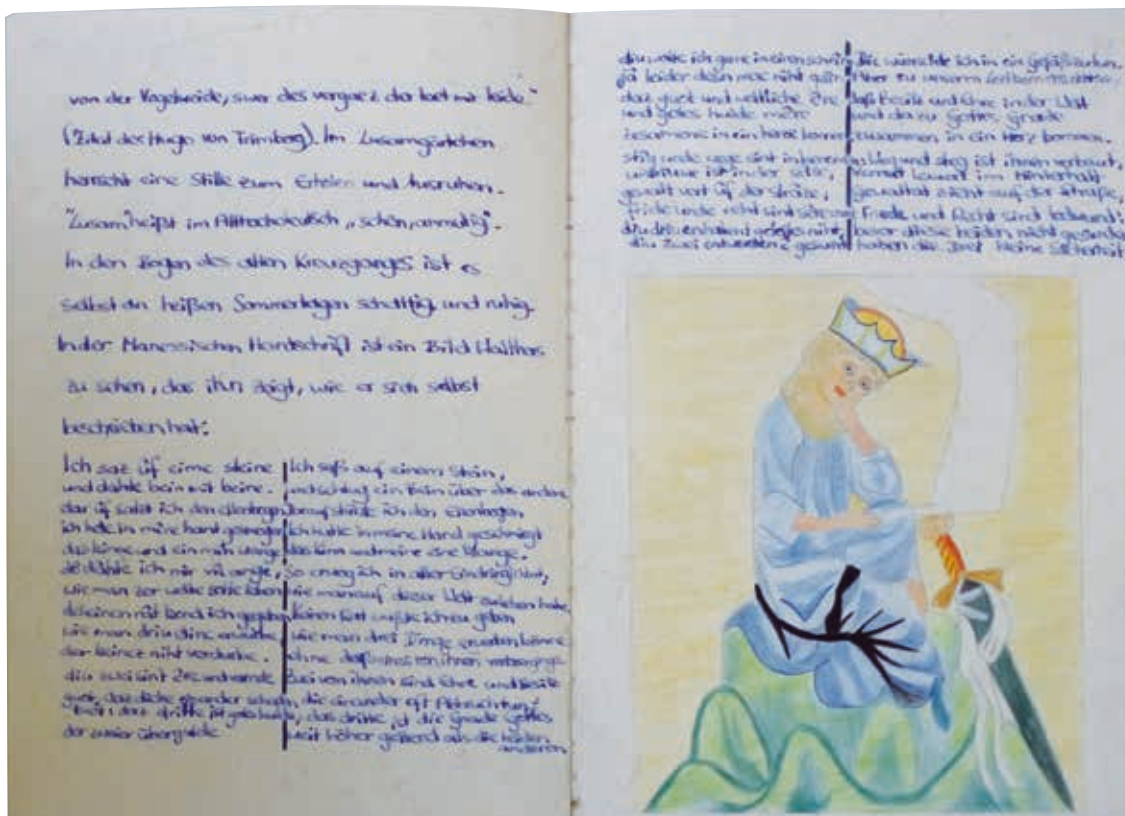 von der Vogelweide, swer des vergaez der taet mir leide."
(Zitat des Hugo von Trimberg). Im Lusamgärtchen
herrscht eine Stille zum Erholen und Ausruhen.
"Lusam" heißt im Althochdeutsch „schön, anmutig".
In den Bögen des alten Kreuzganges ist es
selbst an heißen Sommertagen schattig und ruhig.
In der Manessischen Handschrift ist ein Bild Walthers
zu sehen, das ihn zeigt, wie er sich selbst
beschrieben hat:
Ich saz ûf eime steine
und dahte bein mit beine.
dar ûf sazt ich den ellenbogen
ich hete in mîne hand gesmogen
daz kinne und ein mîn wange
dô dâhte ich mir vil ange,
wie man zer welte solte leben
deheinen rât kond ich gegeben
wie man driu dinc erwürbe
der keinez niht verdurbe.
diu zwei sint êre und varnde
guot, daz dicke einander schaden
daz dritte ist gotes hulde,
der zweier übergulde
Ich saß auf einem Stein,
und schlug ein Bein über das andere
darauf stützte ich den Ellenbogen
Ich hatte in meine Hand geschmiegt
das Kinn und meine eine Wange.
So erwog ich in aller Eindringlichkeit,
wie man auf dieser Welt zu leben habe,
Keinen Rat wußte ich zu geben
wie man drei Dinge erwerben könne
ohne daß eines von ihnen verlorenginge.
Zwei von ihnen sind Ehre und Besitz
die einander oft Abbruch tun,
das dritte ist die Gnade Gottes
weit höher geltend als die beiden
anderen
diu wolte ich gerne in einen schrîn
jâ leider desn mac niht gesîn
daz guot und weltliche êre
und gotes hulde mêre
zesamene in ein herze komen
stîg unde wege sint in benomen
untriuwe ist in der sâze,
gewalt vert ûf der strâze,
fride unde reht sint sêre wunt
diu driu enhabent geleites niht,
diu zwei enwerden ê gesunt
Die wünschte ich in ein Gefäß zu tun.
Aber zu unserm Leid kann das nicht sein
daß Besitz und Ehre in der Welt
und dazu Gottes Gnade
zusammen in ein Herz kommen.
Weg und Steg ist ihnen verbaut,
Verrat lauert im Hinterhalt
Gewalttat zieht auf der Straße,
Friede und Recht sind todwund:
bevor diese beiden nicht gesunden
haben die Drei keine Sicherheit